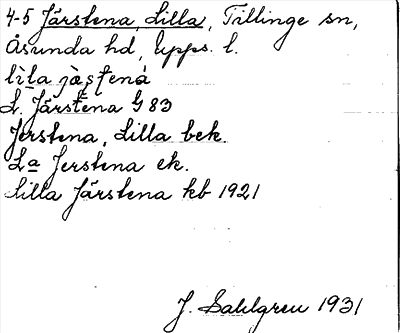 4-5 Järstena, Lilla, Tillinge sn,
Åsunda hd, Upps. l.
lìla jæ̀stená
L. Järstena G 83
Jerstena, Lilla bek.
La Jerstena ek.
Lilla Järstena kb 1921
J. Sahlgren 1931